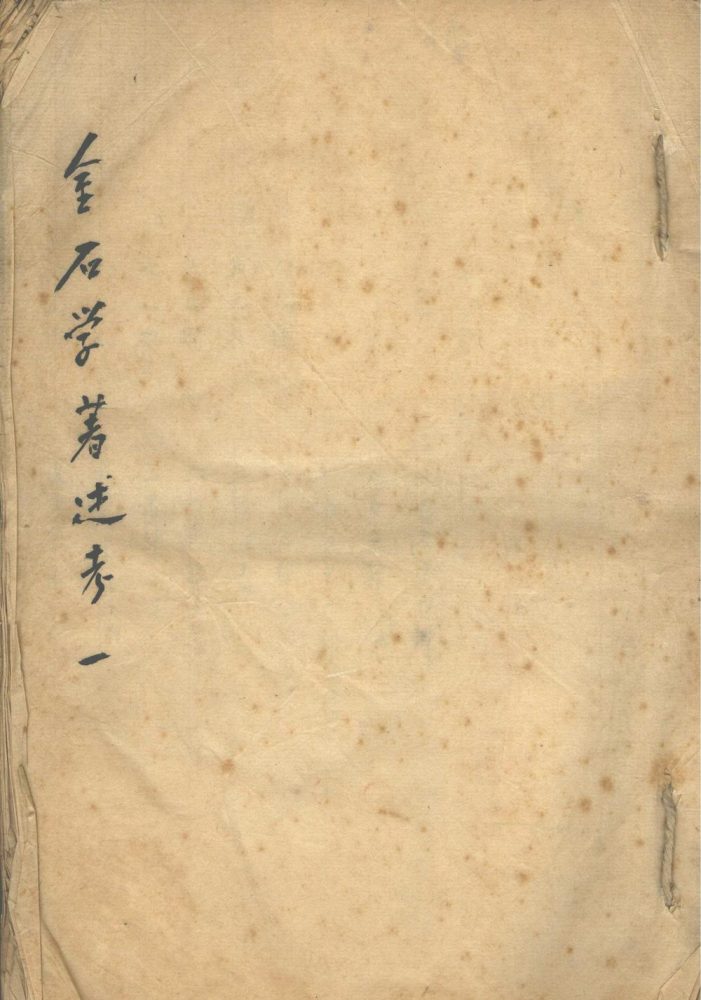 金石学著述考一